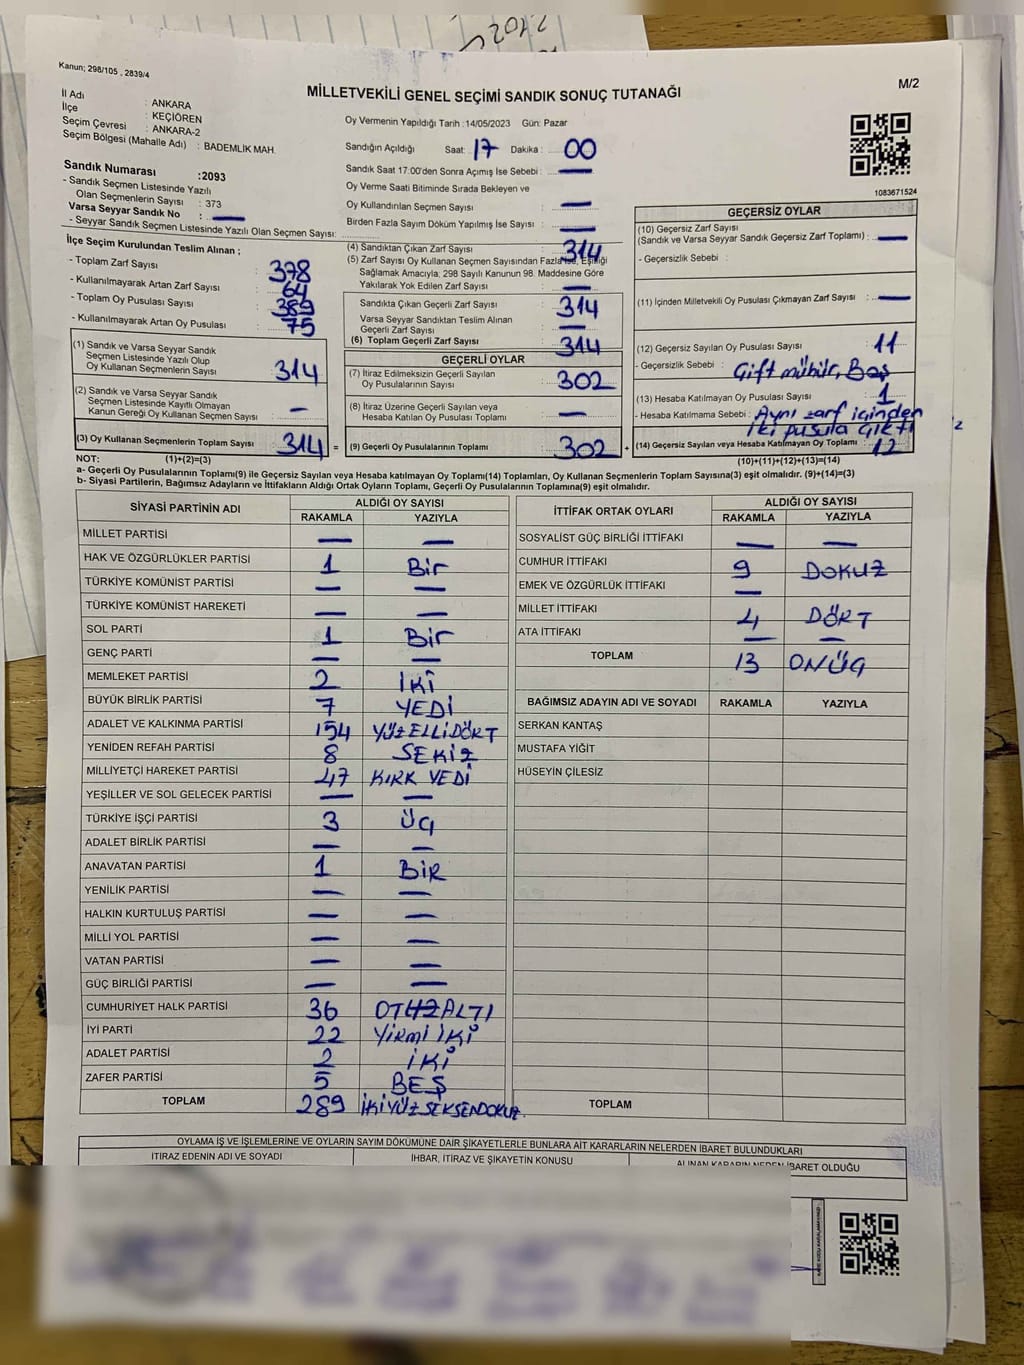 2022
Kanun; 298/105 , 2839/4
M/2
MİLLETVEKİLİ GENEL SEÇİMİ SANDIK SONUÇ TUTANAĞI
İl Adı : ANKARA
İlçe : KEÇİÖREN
Seçim Çevresi : ANKARA-2
Seçim Bölgesi (Mahalle Adı) : BADEMLİK MAH.
Sandık Numarası :2093
- Sandık Seçmen Listesinde Yazılı
Olan Seçmenlerin Sayısı : 373
Varsa Seyyar Sandık No : —
- Seyyar Sandık Seçmen Listesinde Yazılı Olan Seçmen Sayısı:
İlçe Seçim Kurulundan Teslim Alınan ;
- Toplam Zarf Sayısı : 378
- Kullanılmayarak Artan Zarf Sayısı : 64
- Toplam Oy Pusulası Sayısı : 389
- Kullanılmayarak Artan Oy Pusulası : 75
(1) Sandık ve Varsa Seyyar Sandık
Seçmen Listesinde Yazılı Olup
Oy Kullanan Seçmenlerin Sayısı : 314
(2) Sandık ve Varsa Seyyar Sandık
Seçmen Listesinde Kayıtlı Olmayan
Kanun Gereği Oy Kullanan Seçmen Sayısı : —
(3) Oy Kullanan Seçmenlerin Toplam Sayısı : 314 =
Oy Vermenin Yapıldığı Tarih :14/05/2023 Gün: Pazar
Sandığın Açıldığı Saat: 17 Dakika : 00
Sandık Saat 17:00'den Sonra Açımış İse Sebebi : —
Oy Verme Saati Bitiminde Sırada Bekleyen ve
Oy Kullandırılan Seçmen Sayısı : —
Birden Fazla Sayım Döküm Yapılmış İse Sayısı : —
(4) Sandıktan Çıkan Zarf Sayısı : 314
(5) Zarf Sayısı Oy Kullanan Seçmen Sayısından Fazla ise, Eşitliği
Sağlamak Amacıyla; 298 Sayılı Kanunun 98. Maddesine Göre
Yakılarak Yok Edilen Zarf Sayısı : —
Sandıkta Çıkan Geçerli Zarf Sayısı : 314
Varsa Seyyar Sandıktan Teslim Alınan
Geçerli Zarf Sayısı : —
(6) Toplam Geçerli Zarf Sayısı : 314
GEÇERLİ OYLAR
(7) İtiraz Edilmeksizin Geçerli Sayılan
Oy Pusulalarının Sayısı : 302
(8) İtiraz Üzerine Geçerli Sayılan veya
Hesaba Katılan Oy Pusulaları Toplamı : —
(9) Geçerli Oy Pusulalarının Toplamı : 302 +
1083671524
GEÇERSİZ OYLAR
(10) Geçersiz Zarf Sayısı
(Sandık ve Varsa Seyyar Sandık Geçersiz Zarf Toplamı) : —
- Geçersizlik Sebebi :
(11) İçinden Milletvekili Oy Pusulası Çıkmayan Zarf Sayısı : —
(12) Geçersiz Sayılan Oy Pusulası Sayısı : 11
- Geçersizlik Sebebi : Çift mühür, Boş
(13) Hesaba Katılmayan Oy Pusulası Sayısı : 1
- Hesaba Katılmama Sebebi : Aynı zarf içinden
iki pusula çıktı
(14) Geçersiz Sayılan veya Hesaba Katılmayan Oy Toplamı : 12
NOT: (1)+(2)=(3)
(10)+(11)+(12)+(13)=(14)
a- Geçerli Oy Pusulalarının Toplamı(9) ile Geçersiz Sayılan veya Hesaba katılmayan Oy Toplamı(14) Toplamları, Oy Kullanan Seçmenlerin Toplam Sayısına(3) eşit olmalıdır. (9)+(14)=(3)
b- Siyasi Partilerin, Bağımsız Adayların ve İttifakların Aldığı Ortak Oyların Toplamı, Geçerli Oy Pusulalarının Toplamına(9) eşit olmalıdır.
SİYASİ PARTİNİN ADI ALDIĞI OY SAYISI
RAKAMLA YAZIYLA
MİLLET PARTİSİ — —
HAK VE ÖZGÜRLÜKLER PARTİSİ 1 Bir
TÜRKİYE KOMÜNİST PARTİSİ — —
TÜRKİYE KOMÜNİST HAREKETİ — —
SOL PARTİ 1 Bir
GENÇ PARTİ — —
MEMLEKET PARTİSİ 2 İKİ
BÜYÜK BİRLİK PARTİSİ 7 YEDİ
ADALET VE KALKINMA PARTİSİ 154 YÜZELLİDÖRT
YENİDEN REFAH PARTİSİ 8 SEKİZ
MİLLİYETÇİ HAREKET PARTİSİ 47 KIRK YEDİ
YEŞİLLER VE SOL GELECEK PARTİSİ — —
TÜRKİYE İŞÇİ PARTİSİ 3 ÜÇ
ADALET BİRLİK PARTİSİ — —
ANAVATAN PARTİSİ 1 BİR
YENİLİK PARTİSİ — —
HALKIN KURTULUŞ PARTİSİ — —
MİLLİ YOL PARTİSİ — —
VATAN PARTİSİ — —
GÜÇ BİRLİĞİ PARTİSİ — —
CUMHURİYET HALK PARTİSİ 36 OTUZALTI
İYİ PARTİ 22 YİRMİ İKİ
ADALET PARTİSİ 2 İKİ
ZAFER PARTİSİ 5 BEŞ
TOPLAM 289 İKİYÜZSEKSENDOKUZ
İTTİFAK ORTAK OYLARI ALDIĞI OY SAYISI
RAKAMLA YAZIYLA
SOSYALİST GÜÇ BİRLİĞİ İTTİFAKI — —
CUMHUR İTTİFAKI 9 DOKUZ
EMEK VE ÖZGÜRLÜK İTTİFAKI —
MİLLET İTTİFAKI 4 DÖRT
ATA İTTİFAKI — —
TOPLAM 13 ONÜÇ
BAĞIMSIZ ADAYIN ADI VE SOYADI RAKAMLA YAZIYLA
SERKAN KANTAŞ
MUSTAFA YİĞİT
HÜSEYİN ÇİLESİZ
TOPLAM
OYLAMA İŞ VE İŞLEMLERİNE VE OYLARIN SAYIM DÖKÜMÜNE DAİR ŞİKAYETLERLE BUNLARA AİT KARARLARIN NELERDEN İBARET BULUNDUKLARI
İTİRAZ EDENİN ADI VE SOYADI İHBAR, İTİRAZ VE ŞİKAYETİN KONUSU ALINAN KARARIN NEDEN İBARET OLDUĞU